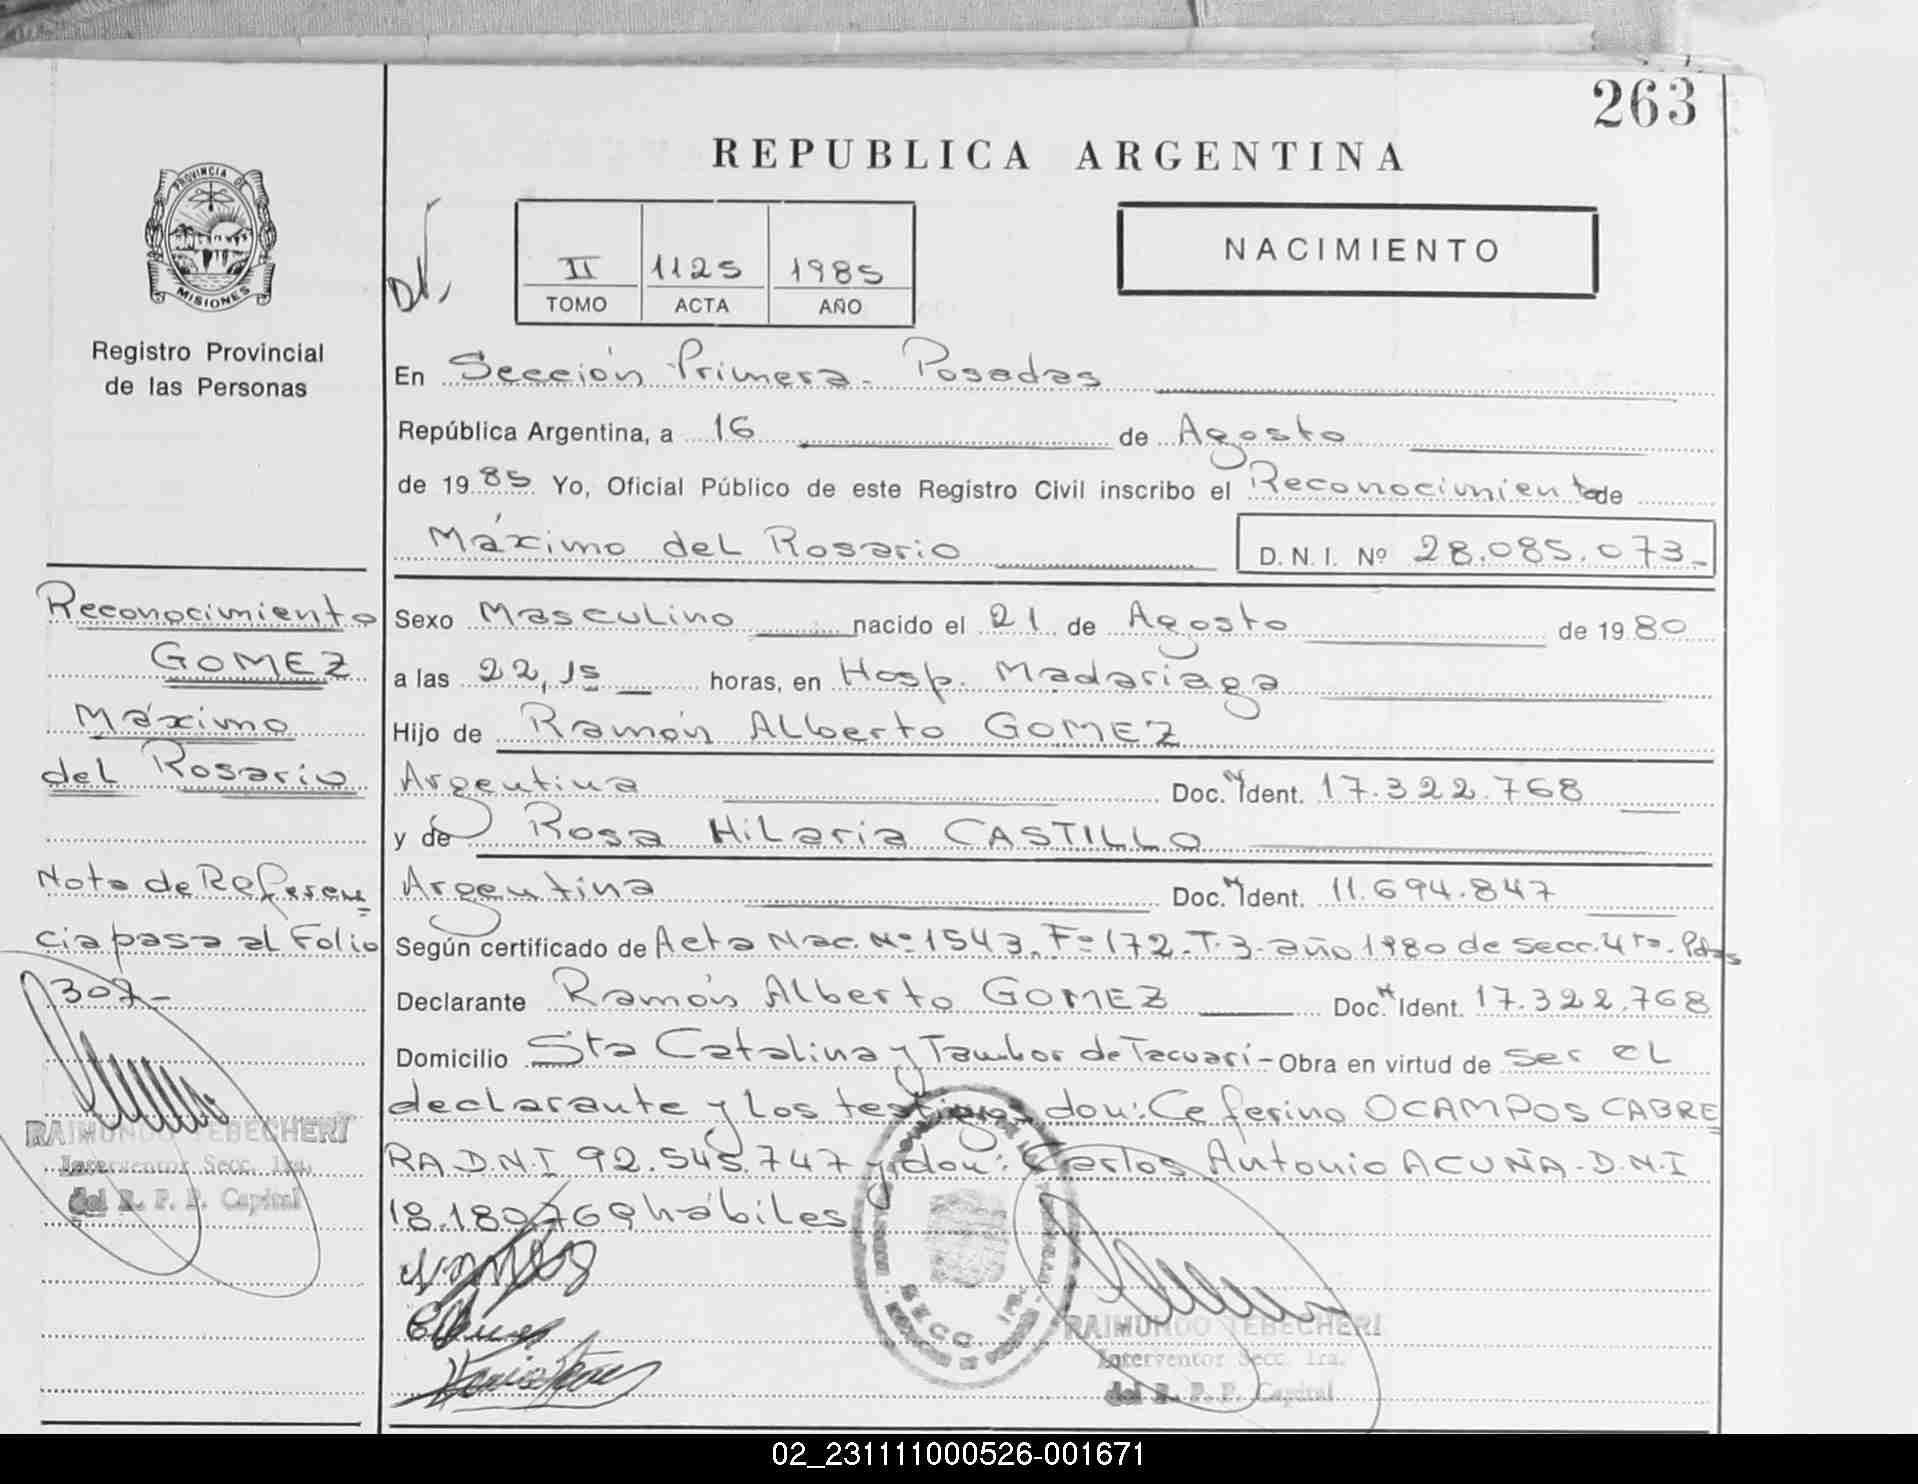 263
REPUBLICA ARGENTINA
PROVINCIA DE
MISIONES
Registro Provincial
de las Personas
II 1125 1985
TOMO ACTA AÑO
NACIMIENTO
En Sección Primera. Posadas
República Argentina, a 16 de Agosto
de 1985 Yo, Oficial Público de este Registro Civil inscribo el Reconocimiento de
Máximo del Rosario D. N. I. Nº 28.085.073-
Reconocimiento
GOMEZ
Máximo
del Rosario
Nota de Referen
cia pasa al Folio
307-
RAIMUNDO TEBECHERI
Interventor Secc. 1ra.
del R. P. P. Capital
Sexo Masculino nacido el 21 de Agosto de 1980
a las 22,15 horas, en Hosp. Madariaga
Hijo de Ramón Alberto GOMEZ
Argentina Doc. N Ident. 17.322.768
y de Rosa Hilaria CASTILLO
Argentina Doc. N Ident. 11.694.847
Según certificado de Acta Nac. Nº 1543. Fº 172. T. 3. año 1980 de secc. 4ta. Pdas
Declarante Ramón Alberto GOMEZ Doc. N Ident. 17.322.768
Domicilio Sta Catalina y Tambor de Tacuarí - Obra en virtud de ser el
declarante y los testigos don: Ceferino OCAMPOS CABRE
RA D.N.I 92.545.747 y don: Carlos Antonio ACUÑA. D.N.I
18.180.769 hábiles
SECC. 1ra.
RAIMUNDO TEBECHERI
Interventor Secc. 1ra.
del R. P. P. Capital
02_231111000526-001671